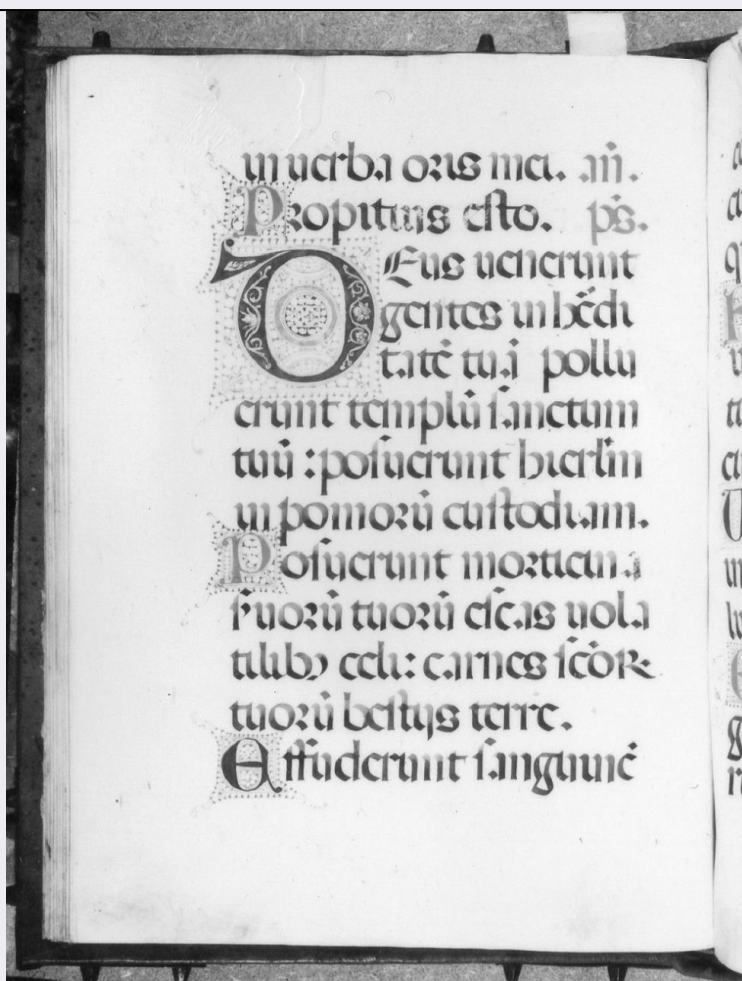 in uerba oris mei. añ.
Propitius esto. ps̄.
DEus uenerunt
gentes in hēdi
tatē tuā pollu
erunt templū sanctum
tuū : posuerunt hierl̄m
in pomorū custodiam.
Posuerunt morticina
s̄uorū tuorū escas uola
tilibꝫ celi: carnes scōꝝ
tuorū bestijs terre.
Effuderunt sanguinē